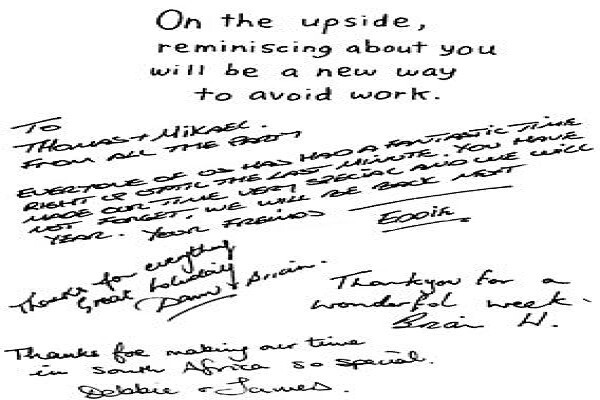 On the upside,
reminiscing about you
will be a new way
to avoid work.
TO
THOMAS + MIKAEL.
FROM ALL THE PARTY
EVERYONE OF US HAS HAD A FANTASTIC TIME
RIGHT UP UNTIL THE LAST MINUTE. YOU HAVE
MADE OUR TIME VERY SPECIAL AND WE WILL
NOT FORGET. WE WILL BE BACK NEXT
YEAR. YOUR FRIENDS
EDDIE.
Thanks for everything
Great holiday
+
Thankyou for a
wonderful week.
Brian H.
Thanks for making our time
in South Africa so special.
Debbie + James.